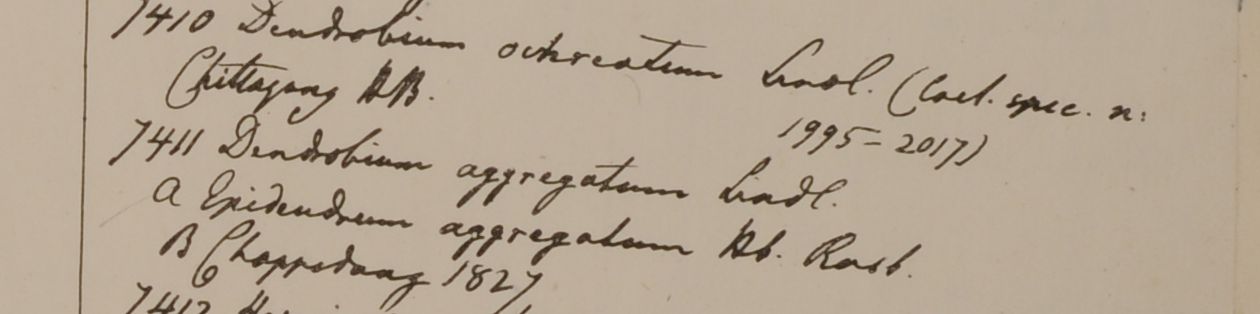 7410 Dendrobium ochreatum Lindl. (Cael. spec. n:
1995–2017)
Chittagong HB.
7411 Dendrobium aggregatum Lindl.
a Epidendrum aggregatum Hb. Roxb.
B Chappedong 1827
7412